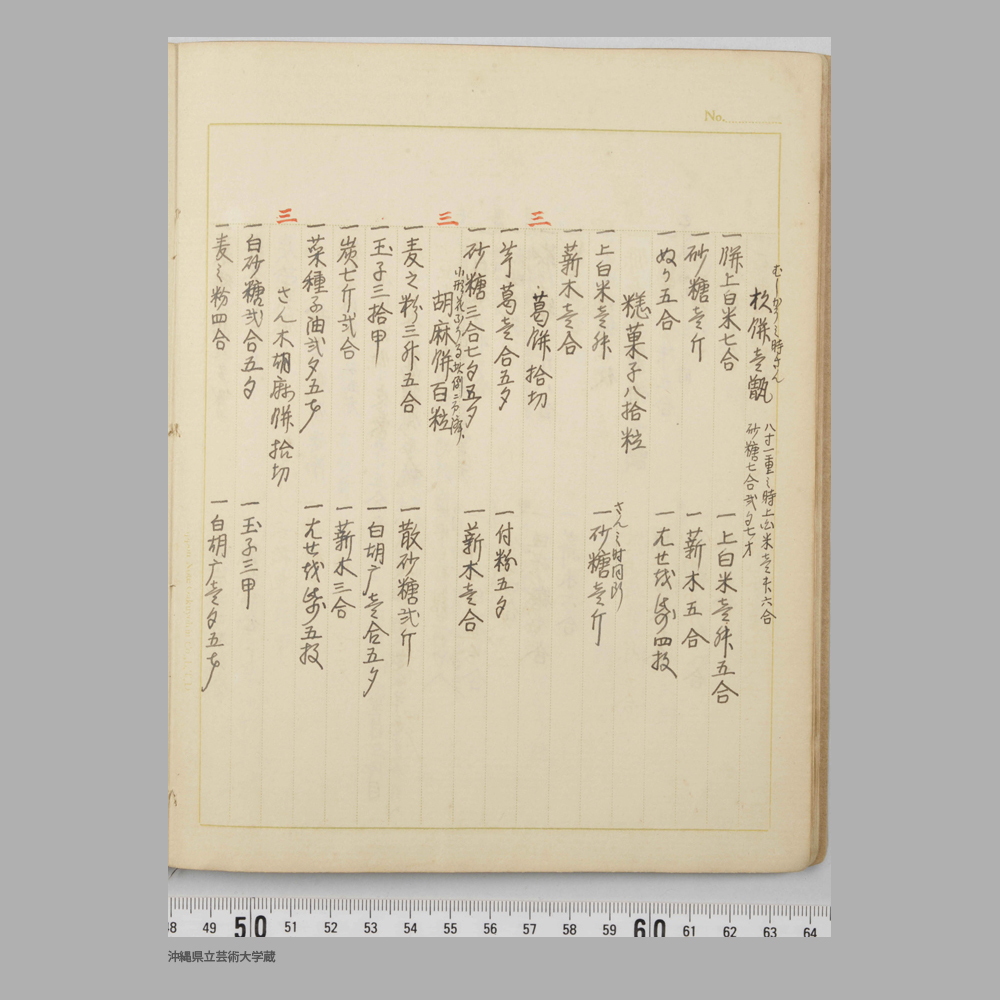 No.
枚餅壱甑
八寸一重之時上白米壱升六合
砂糖七合弐夕七才
一 餅上白米七合
一 上白米壱升五合
一 砂糖壱斤
一 薪木五合
一 ぬか五合
一 尤せ 四枚
菓子八拾粒
一 上白米壱升
さん之時同断
一 砂糖壱斤
一 薪木壱合
三
葛餅拾切
一 芋葛壱合五夕
一 付粉五夕
一 砂糖三合七夕五夕
一 薪木壱合
三
胡麻餅百粒
一 麦之粉三升五合
一 散砂糖弐斤
一 玉子三拾甲
一 白胡广壱合五夕
一 炭七斤弐合
一 薪木三合
一 菜種子油弐夕五才
一 尤せ 五枚
三
さん木胡麻餅拾切
一 白砂糖弐合五夕
一 玉子三甲
一 麦之粉四合
一 白胡广壱夕五才
48 49 50 51 52 53 54 55 56 57 58 59 60 61 62 63 64
沖縄県立芸術大学蔵